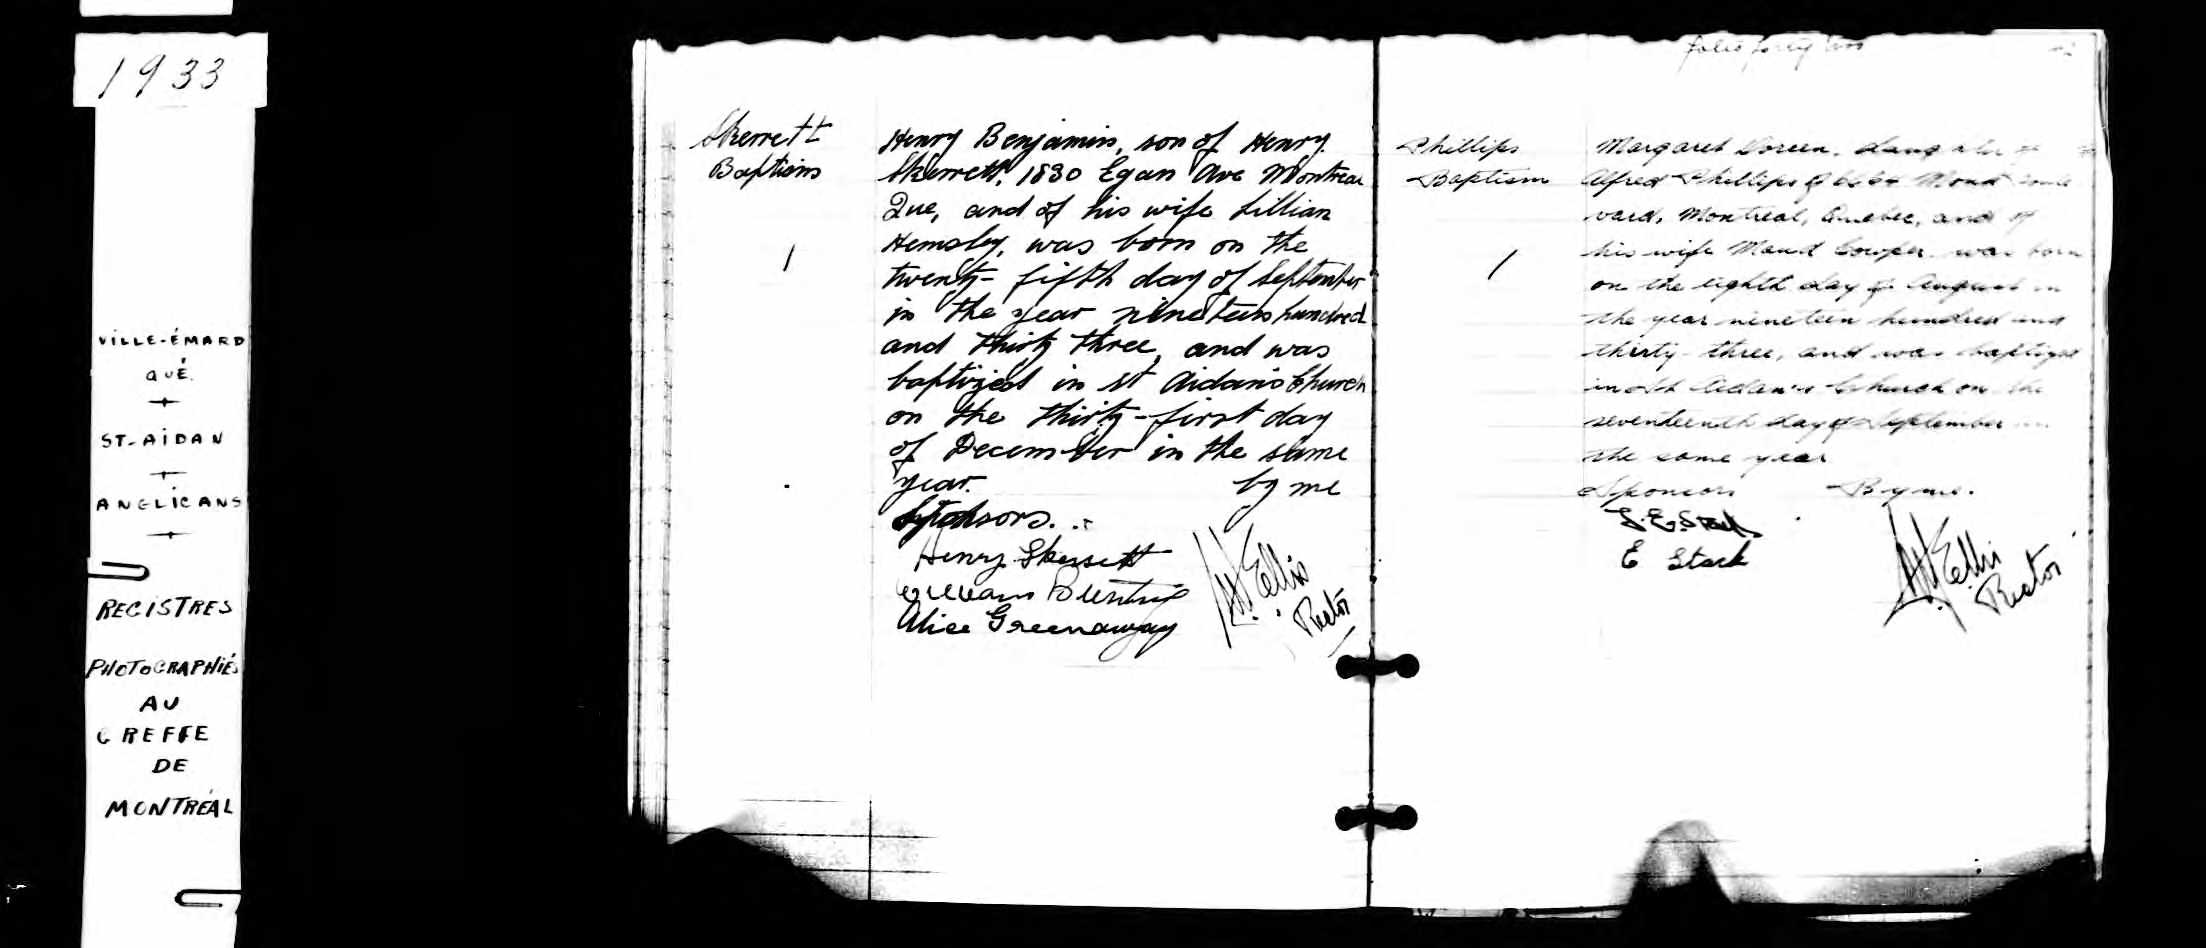 1933
VILLE-ÉMARD
QUÉ.
ST-AIDAN
ANGLICANS
REGISTRES
PHOTOGRAPHIÉS
AU
GREFFE
DE
MONTRÉAL
Skerrett
Baptism
1
Henry Benjamin, son of Henry
Skerrett, 1830 Egan Ave Montreal
Que, and of his wife Lillian
Hemsley, was born on the
twenty-fifth day of September
in the year nineteen hundred
and thirty three, and was
baptized in St Aidan's Church
on the thirty-first day
of December in the same
year. by me
Sponsors.
Henry Skerrett
William
Alice Greenaway
Ellis
Rector
folio forty two
42
Phillips
Baptism
1
Margaret Doreen, daughter of
Alfred Phillips of Monk Boule
vard, Montreal, Quebec, and of
his wife Maud Cowper was born
on the eighth day of August in
the year nineteen hundred and
thirty-three, and was baptized
in St Aidan's Church on the
seventeenth day of September in
the same year
Sponsors By me.
E Stack
Ellis
Rector